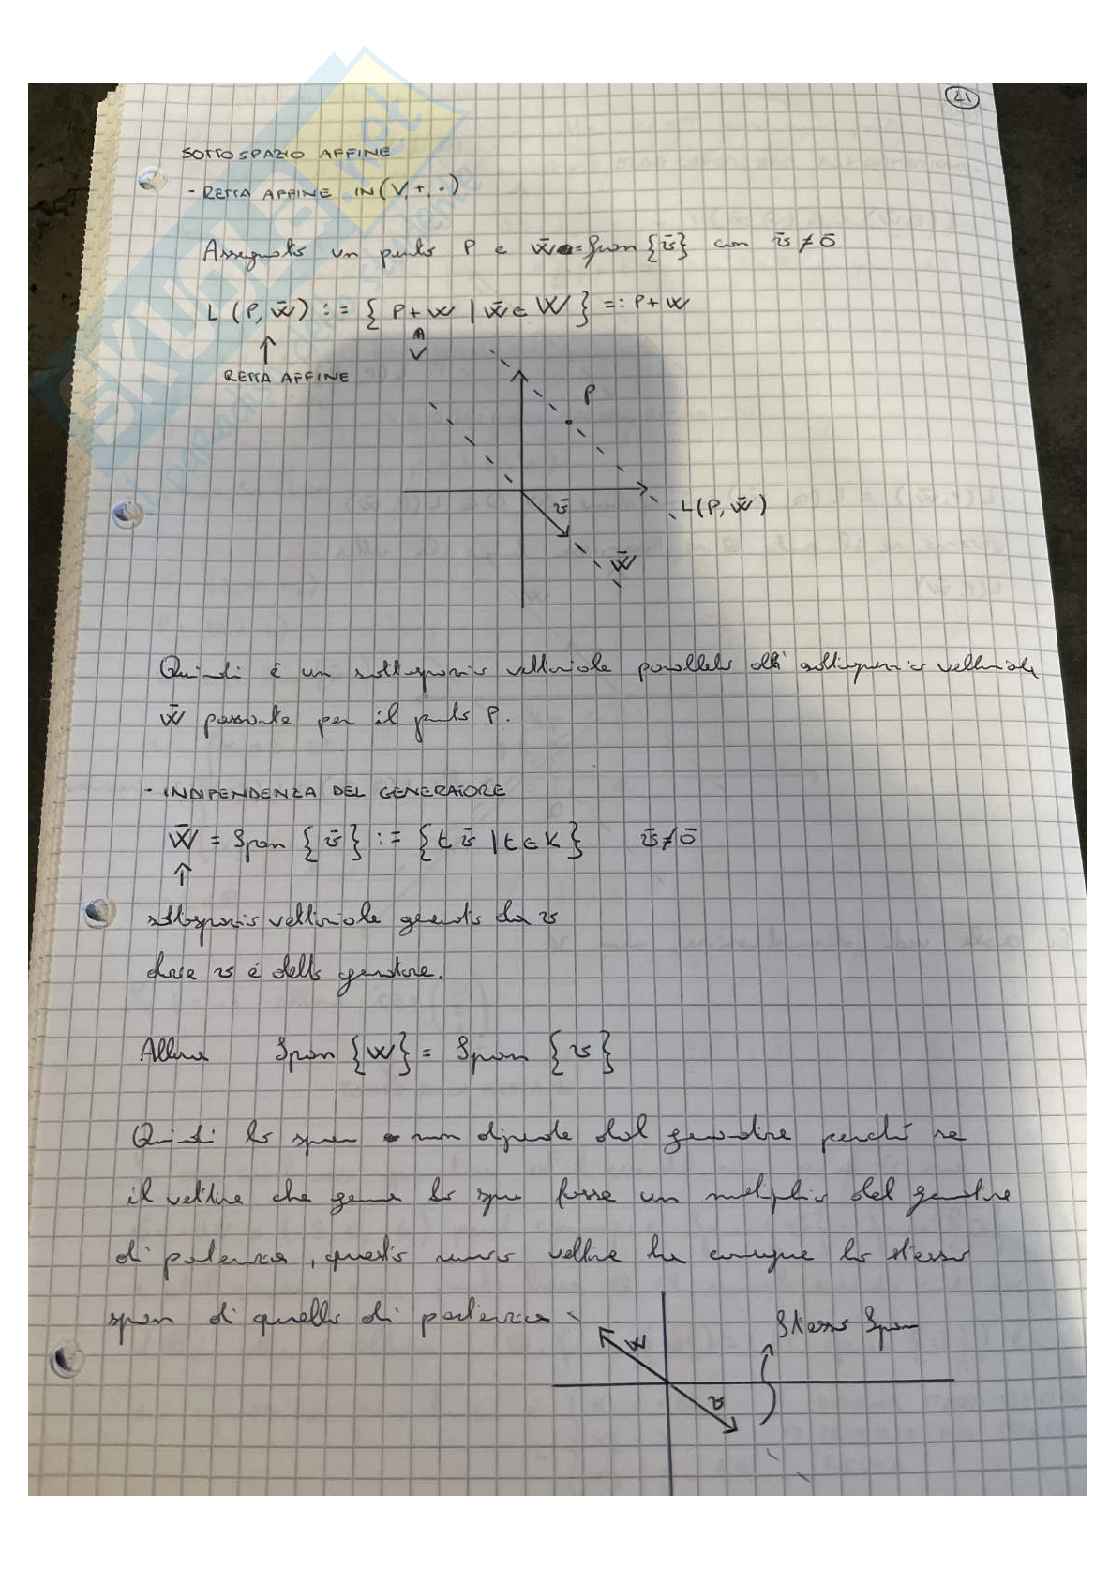 21
SOTTOSPAZIO AFFINE
- RETTA AFFINE IN (V, +, ·)
Assegnato un punto P e W̄ = Span {v̄} con v̄ ≠ ō
L (P, W̄) := { P + w | w̄ ∈ W } =: P + W
V
RETTA AFFINE
P
v̄
L(P, W̄)
W̄
Quindi è un sottospazio vettoriale parallelo all' sottospazio vettoriale
W̄ passante per il punto P.
- INDIPENDENZA DEL GENERATORE
W̄ = Span { v̄ } := { t v̄ | t ∈ K } v̄ ≠ ō
sottospazio vettoriale generato da v
dove v è detto generatore.
Allora Span {w} = Span {v}
Quindi lo span non dipende dal generatore perché se
il vettore che genera lo span fosse un multiplo del generatore
di partenza, questo nuovo vettore ha comunque lo stesso
span di quello di partenza
w
v
Stesso Span
SKUOLA.net